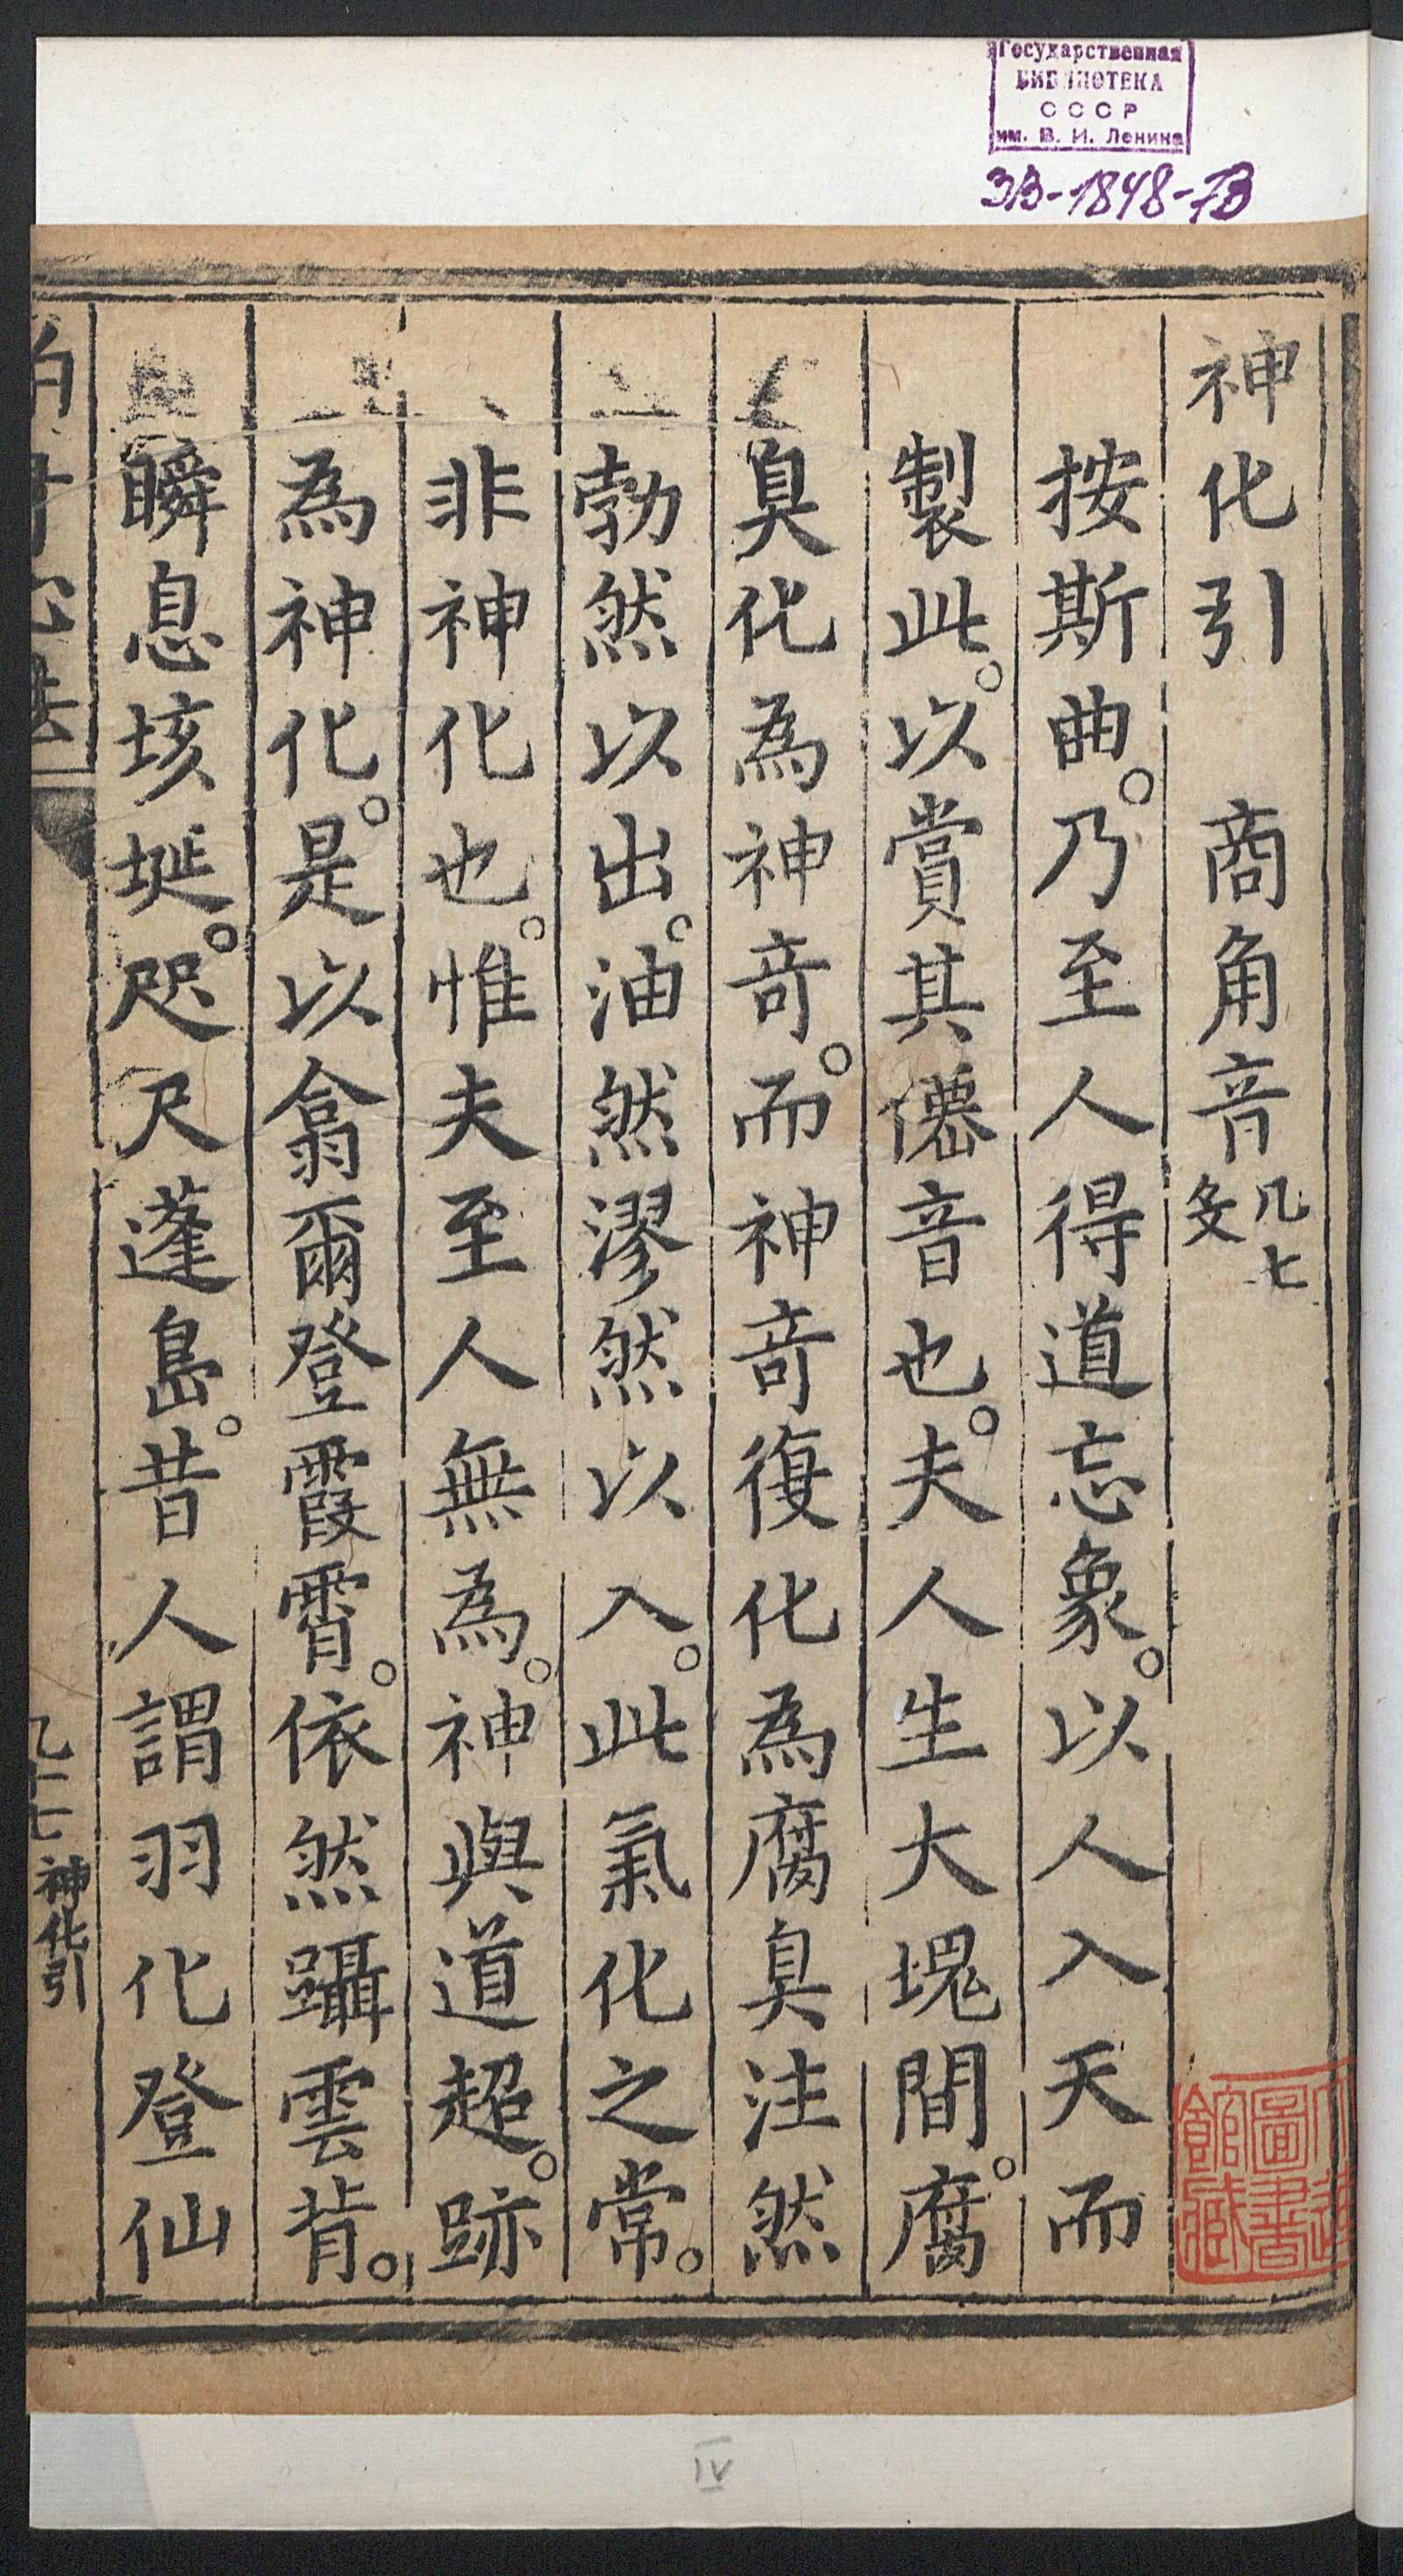 Государственная
БИБЛИОТЕКА
СССР
им. В. И. Ленина
3В-1848-7В
神化引 商角音 凡七
䒑
按斯曲。乃至人得道忘象。以人入天而
製此。以賞其僊音也。夫人生大塊間。腐
臭化為神竒。而神竒復化為腐臭注然
勃然以出。油然漻然以入。此氣化之常。
非神化也。惟夫至人無為。神與道超。跡
為神化。是以翕爾登霞霄。依然躡雲背。
瞬息垓埏。咫尺蓬島。昔人謂羽化登仙
神化引
圖書
館藏
IV